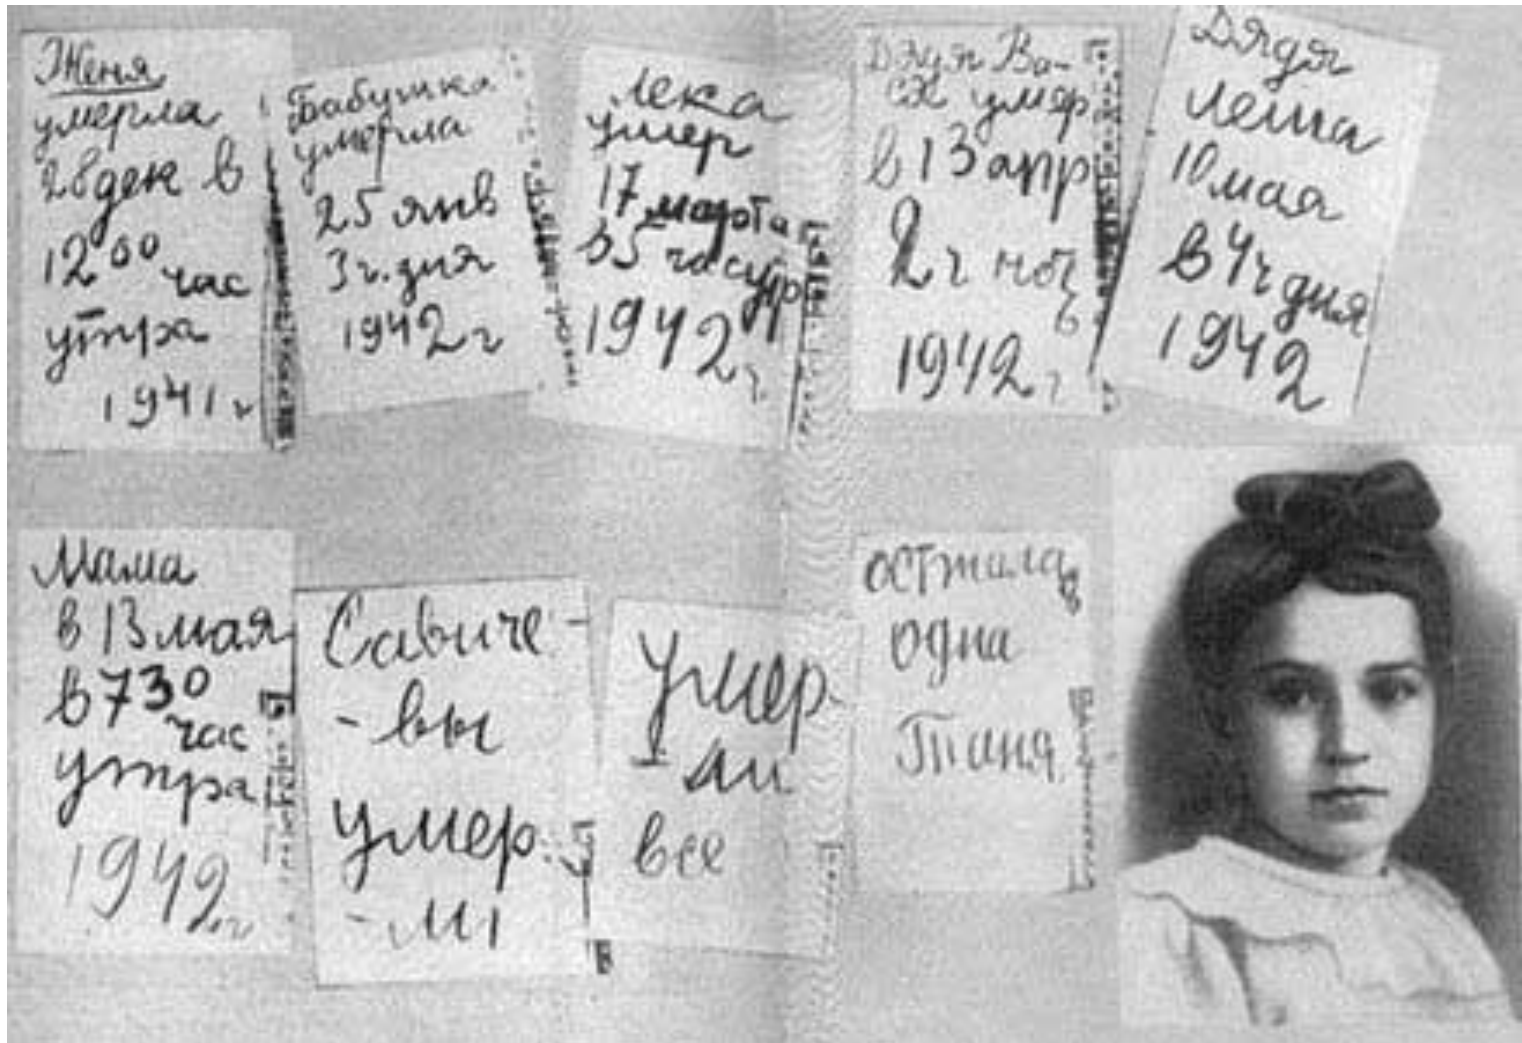 Женя
умерла
28 дек в
12 00 час
утра
1941 г
Бабушка
умерла
25 янв
3 ч. дня
1942 г
Лека
умер
17 марта
в 5 час утр
1942 г.
Дядя Ва-
ся умер
в 13 апр
2 ч ноч
ь
1942 г
Дядя
Леша
10 мая
в 4 ч дня
1942
Мама
в 13 мая
в 7 30
час
утра
1942 г
Савиче-
- вы
умер
- ли
Умер-
- ли
все
осталась
одна
Таня